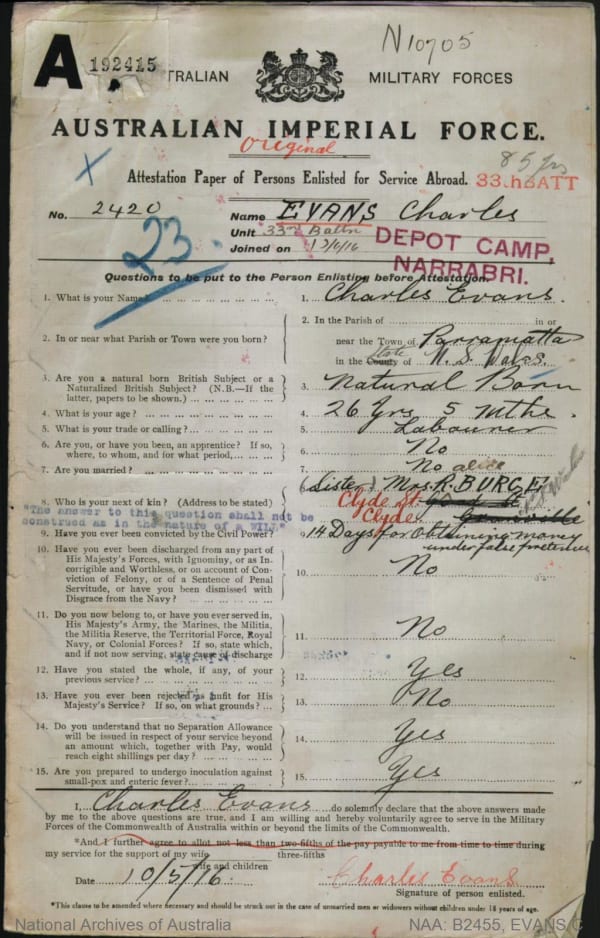 A 192415
N10705
TRALIAN MILITARY FORCES
AUSTRALIAN IMPERIAL FORCE.
Original
Attestation Paper of Persons Enlisted for Service Abroad.
33.hBATT
No. 2420 Name EVANS Charles
Unit 33rd Battn
Joined on
DEPOT CAMP,
NARRABRI.
23
Questions to be put to the Person Enlisting before Attestation.
1. What is your Name? 1. Charles Evans.
2. In or near what Parish or Town were you born? 2. In the Parish of in or
near the Town of Parramatta
in the County State N. S. Wales.
3. Are you a natural born British Subject or a Naturalized British Subject? (N.B.—If the latter, papers to be shown.) 3. Natural Born
4. What is your age? 4. 26 Yrs 5 Mths.
5. What is your trade or calling? 5. Labourer
6. Are you, or have you been, an apprentice? If so, where, to whom, and for what period 6. No
7. Are you married? 7. No
alice
8. Who is your next of kin? (Address to be stated) (Sister) Mrs. R. BURGE
Clyde St.
Clyde Granville
"The answer to this question shall not be
construed as in the nature of a WILL"
9. Have you ever been convicted by the Civil Power? 9. 14 Days for Obtaining money
under false pretences
10. Have you ever been discharged from any part of His Majesty's Forces, with Ignominy, or as Incorrigible and Worthless, or on account of Conviction of Felony, or of a Sentence of Penal Servitude, or have you been dismissed with Disgrace from the Navy? 10. No
11. Do you now belong to, or have you ever served in, His Majesty's Army, the Marines, the Militia, the Militia Reserve, the Territorial Force, Royal Navy, or Colonial Forces? If so, state which, and if not now serving, state cause of discharge 11. No
12. Have you stated the whole, if any, of your previous service? 12. Yes
13. Have you ever been rejected as unfit for His Majesty's Service? If so, on what grounds? 13. No
14. Do you understand that no Separation Allowance will be issued in respect of your service beyond an amount which, together with Pay, would reach eight shillings per day? 14. Yes
15. Are you prepared to undergo inoculation against small-pox and enteric fever? 15. Yes
I, Charles Evans do solemnly declare that the above answers made
by me to the above questions are true, and I am willing and hereby voluntarily agree to serve in the Military
Forces of the Commonwealth of Australia within or beyond the limits of the Commonwealth.
*And I further agree to allot not less than two-fifths of the pay payable to me from time to time during
three-fifths
my service for the support of my wife
wife and children
Date 10/5/16. Charles Evans
Signature of person enlisted.
*This clause to be amended where necessary and should be struck out in the case of unmarried men or widowers without children under 18 years of age.
National Archives of Australia NAA: B2455, EVANS C